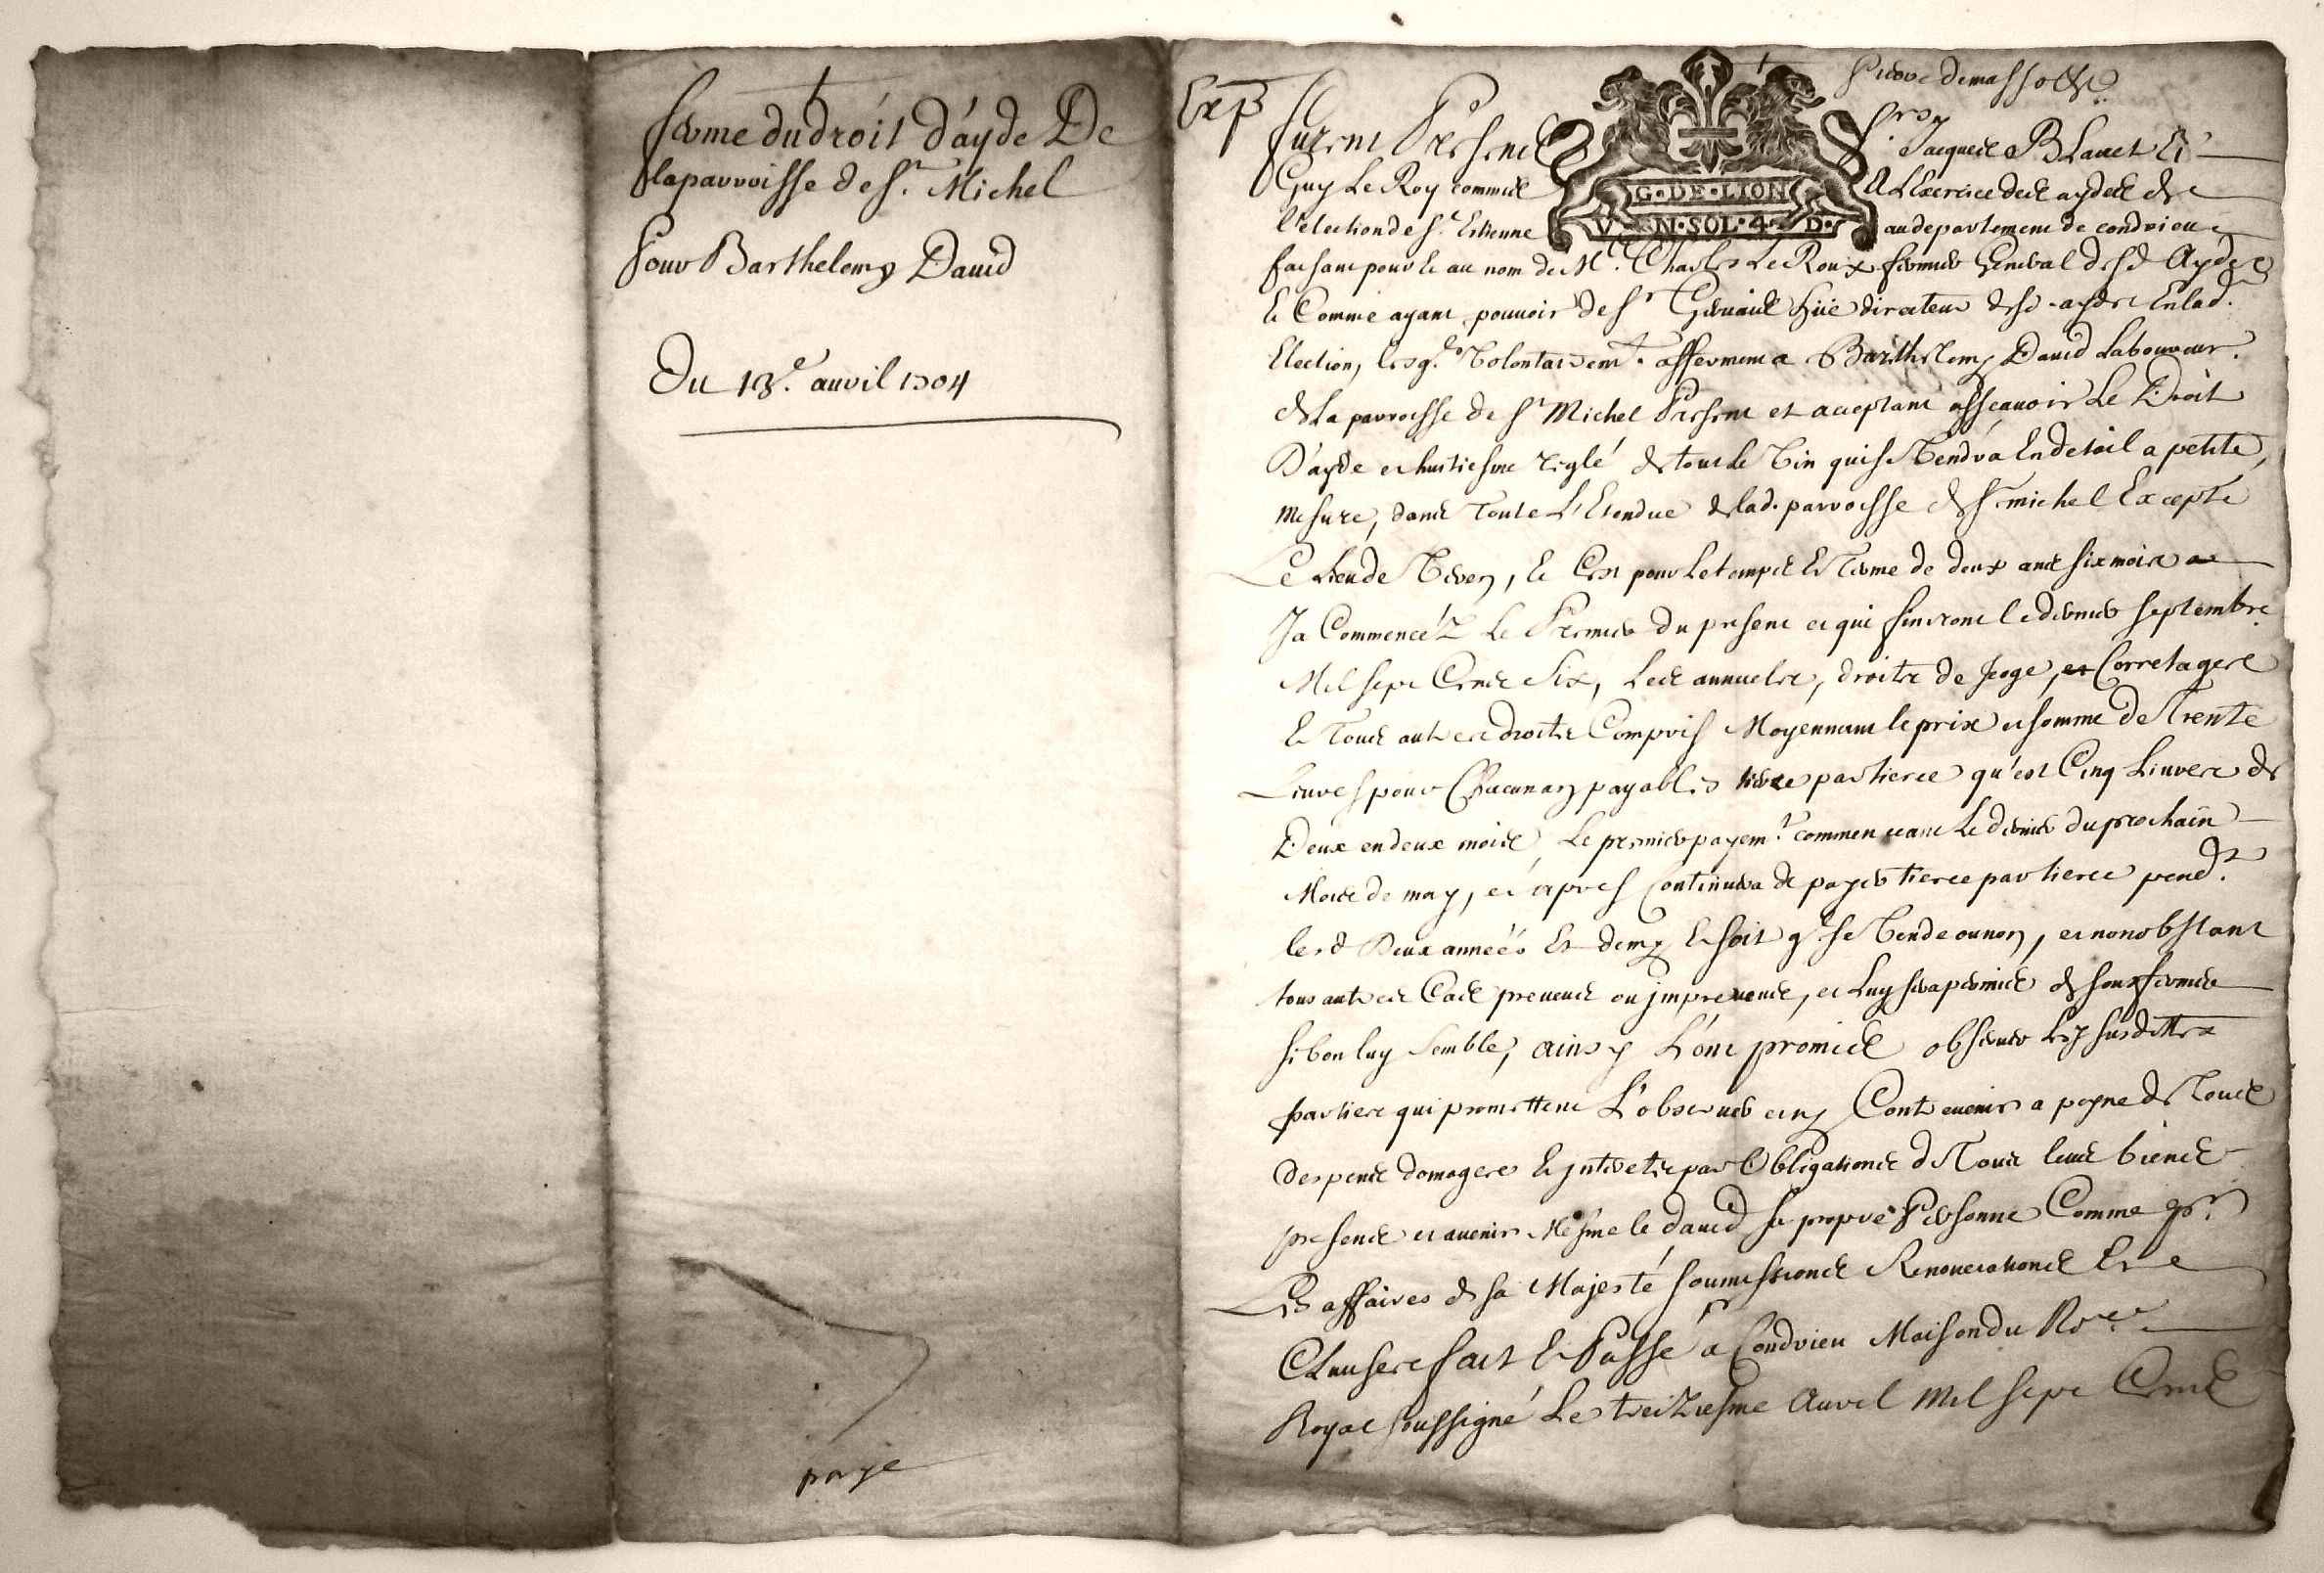 ferme du droit d'ayde De
la parroisse de St. Michel
Pour Barthelemy David
Du 13e. auvril 1704
paye
Exp
G·DE·LION
V N·SOL·4·D·
furent Presents Srs. Jacques Blanet Et
Guy Le Roy commis A L'Exercice des aydes de
l'Election de St. Estienne au departement de condrieu
faisant pour et au nom de Me. Charles Le Roux fermier General desd Aydes
Et Comme ayant pouvoir de Sr directeur desd aydes En lad.
Election, lesqls. Volontairemt. afferment a Barthelemy David Laboureur
de La parroisse de St Michel Present et aceptant assçauoir Le Droit
D'ayde et huitiesme reglé de tout Le Vin qui se Vendra En detail a petite
mesure, dans Toute L'Etendue de lad. parroisse de St michel Excepté
Le Lieu de Verey, Et Ce pour Le temps Et Terme de deux ans six mois
Ja Commencéz Le Premier du present et qui finiront le dernier septembre
Mil sept Cents Six, Les annuels, droits de Jeoge, et Corretages
Et Tous autres droits Compris Moyennant le prix et somme de Trente
Liures pour Chacun an payables tierce par tierce qu'est Cinq Liures de
Deux en deux mois, Le premier payemt. commencant Le dernier du prochain
Mois de may, et apres Continuera de payer tierce par tierce pendt.
lesd Deux années Et demy Et soit ql. se Vende ou non, et nonobstant
tous autres Cas preueus ou jnpreueus, et Luy sera permis de sous fermer
si bon luy semble, ainsy L'ont promis obseruer Les susdittes
parties qui promettent L'obseruer et ny Contreuenir a peyne de Tous
despens domages Et jnterets par Obligations de Tous leurs biens
presents et auenir Mesme le david sa propre Personne Comme pr.
Les affaires de sa Majesté soumissions Renonciations Et
Clauses fait Et Passé a Condrieu Maison du Nre.
Royal soussigné Le treiziesme Auvril Mil sept Cents